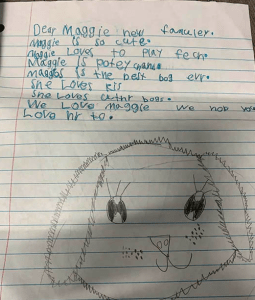 Dear Maggie new famuler.
Maggie is so cute.
Maggie Loves to PLAY fech.
Maggie is potey
Maggos is the best bog err.
She Loves kis
She Loves buthr bogs.
We Love Maggie we hop you
Love hr to.